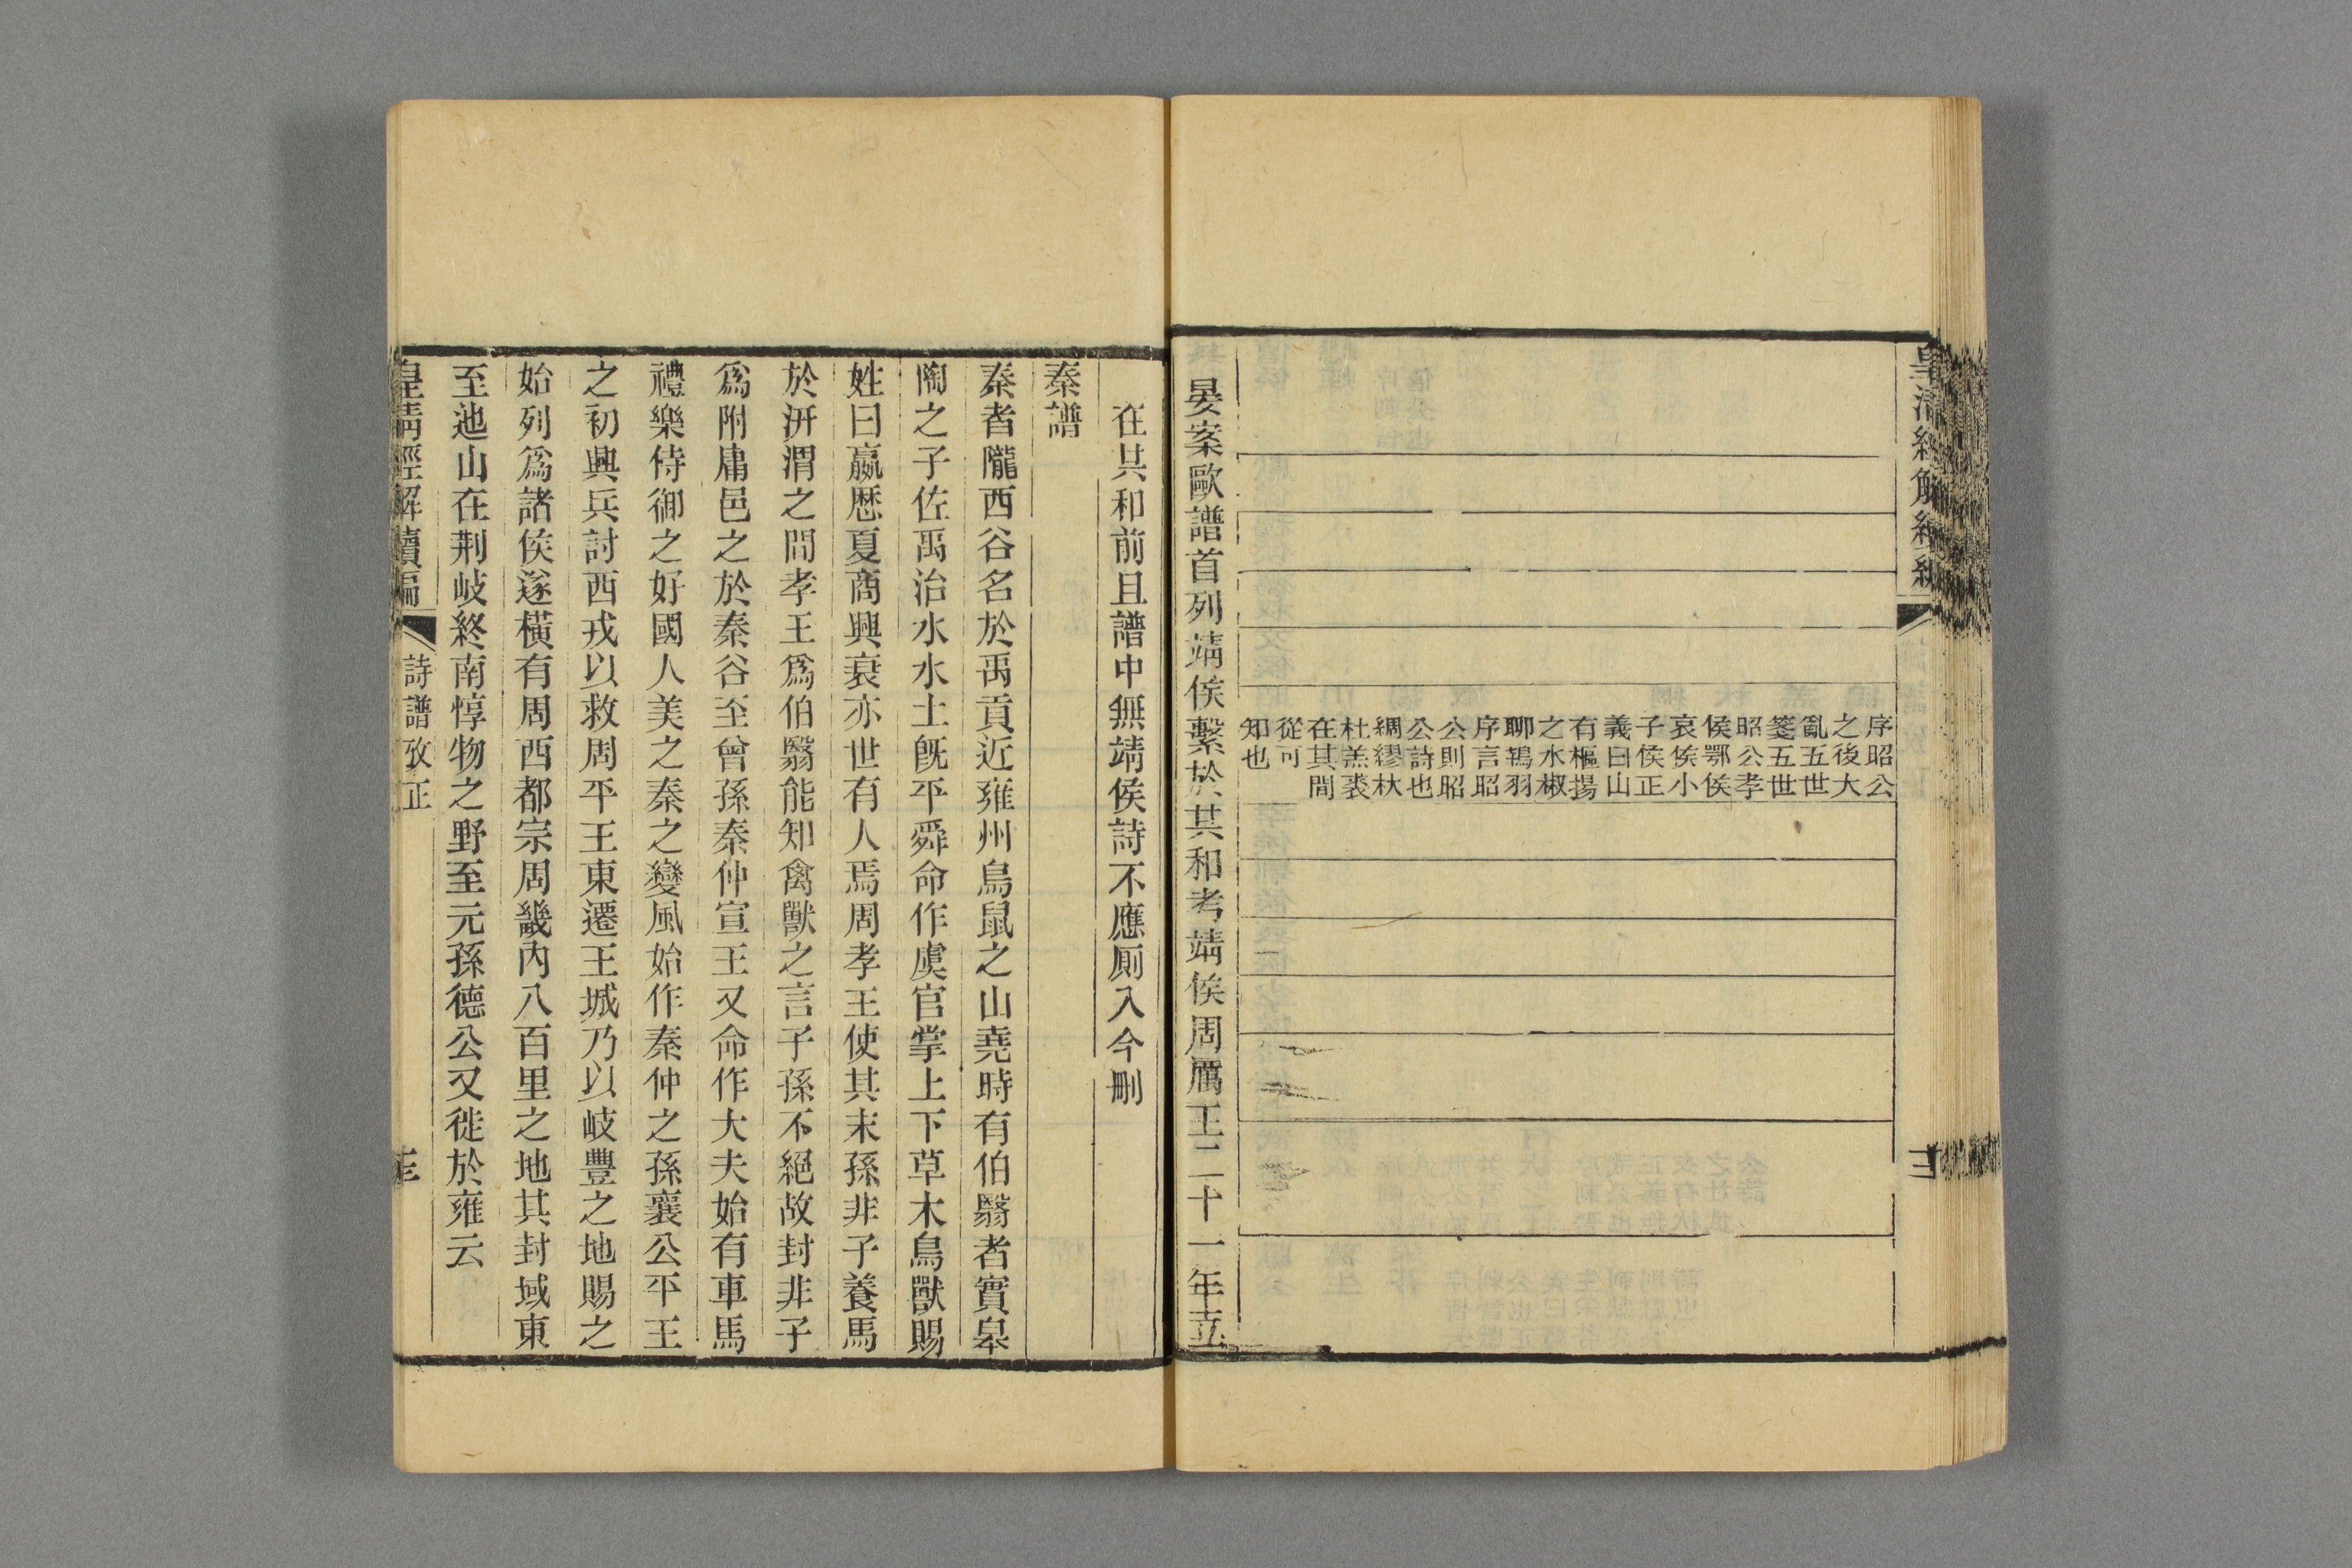 皇清經解續編
序昭公
之後大
亂五世
箋五世
昭公孝
侯鄂侯
哀侯小
子侯正
義曰山
有樞揚
之水椒
聊鴇羽
序言昭
公則昭
公詩也
綢繆杕
杜羔裘
在其間
從可
知也
晏案歐譜首列靖侯繫於共和考靖侯周厲王二十一年立
在共和前且譜中無靖侯詩不應厠入今刪
秦譜
秦者隴西谷名於禹貢近雍州鳥鼠之山堯時有伯翳者實皋
陶之子佐禹治水水土旣平舜命作虞官掌上下草木鳥獸賜
姓曰嬴歷夏商興衰亦世有人焉周孝王使其末孫非子養馬
於汧渭之間孝王爲伯翳能知禽獸之言子孫不絕故封非子
爲附庸邑之於秦谷至曾孫秦仲宣王又命作大夫始有車馬
禮樂侍御之好國人美之秦之變風始作秦仲之孫襄公平王
之初興兵討西戎以救周平王東遷王城乃以岐豐之地賜之
始列爲諸侯遂橫有周西都宗周畿內八百里之地其封域東
至迆山在荆岐終南惇物之野至元孫德公又徙於雍云
皇清經解續編
詩譜攷正